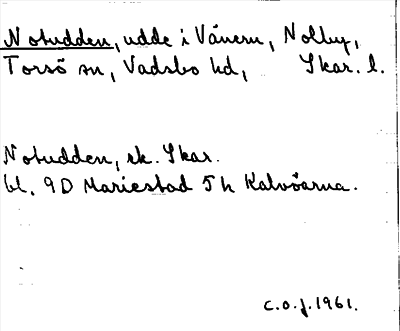 Notudden, udde i Vänern, Nolby,
Torsö sn, Vadsbo hd, Skar. l.
Notudden, ek. Skar.
bl. 9D Mariestad 5h Kalvöarna.
c.o.f. 1961.